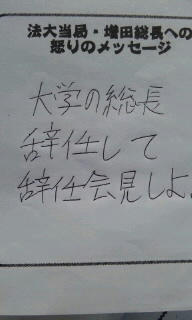 法大当局・増田総長への
怒りのメッセージ
大学の総長
辞任して
辞任会見しよ.